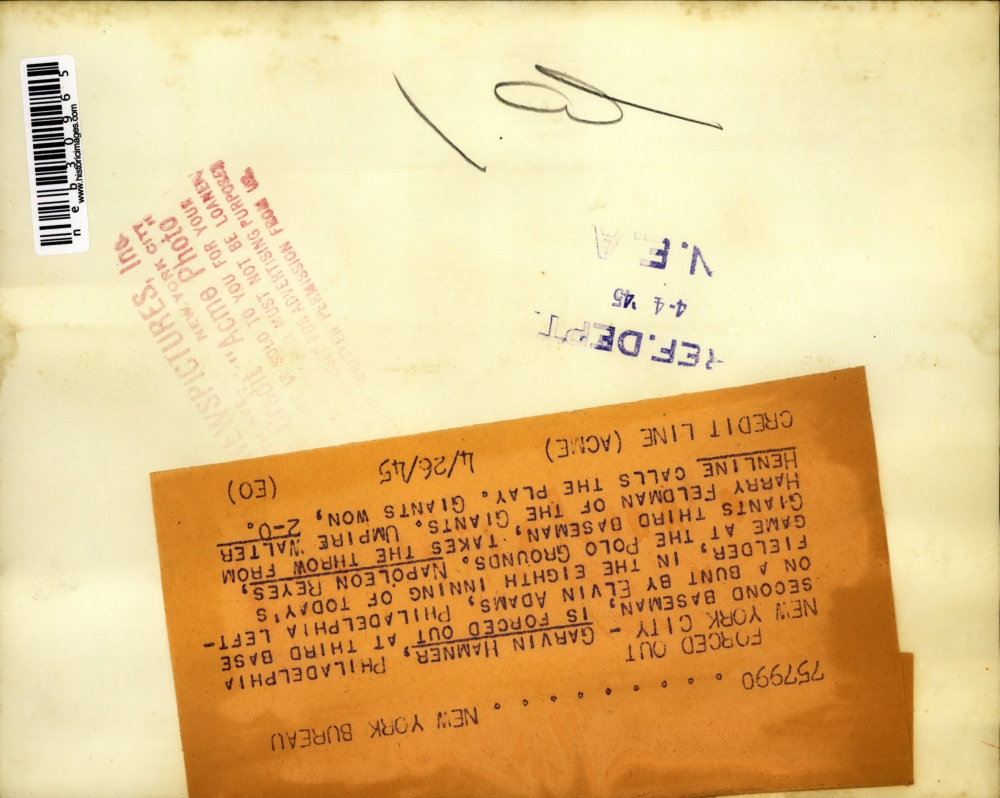 neb30965
www.historicimages.com
NEWSPICTURES, Inc.
NEW YORK CITY
Credit "Acme Photo
IS SOLD TO YOU FOR YOUR
MUST NOT BE LOANED,
FOR ADVERTISING PURPOSES
PERMISSION FROM US.
REF.DEPT.
4-4 '45
N.E.A
757990 . . . . . . . . . . NEW YORK BUREAU
FORCED OUT
NEW YORK CITY - GARVIN HAMNER, PHILADELPHIA
SECOND BASEMAN, IS FORCED OUT AT THIRD BASE
ON A BUNT BY ELVIN ADAMS, PHILADELPHIA LEFT-
FIELDER, IN THE EIGHTH INNING OF TODAY'S
GAME AT THE POLO GROUNDS. NAPOLEON REYES,
GIANTS THIRD BASEMAN, TAKES THE THROW FROM
HARRY FELDMAN OF THE GIANTS. UMPIRE WALTER
HENLINE CALLS THE PLAY. GIANTS WON, 2-0.
CREDIT LINE (ACME) 4/26/45 (EO)